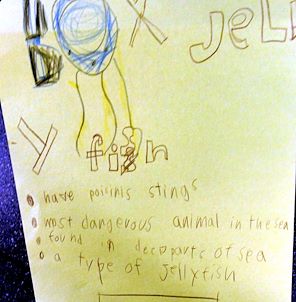 BOX JeLL
Y fish
have poisinis stings
most dangerous animal in the sea
found in deep parts of sea
a type of jellyfish